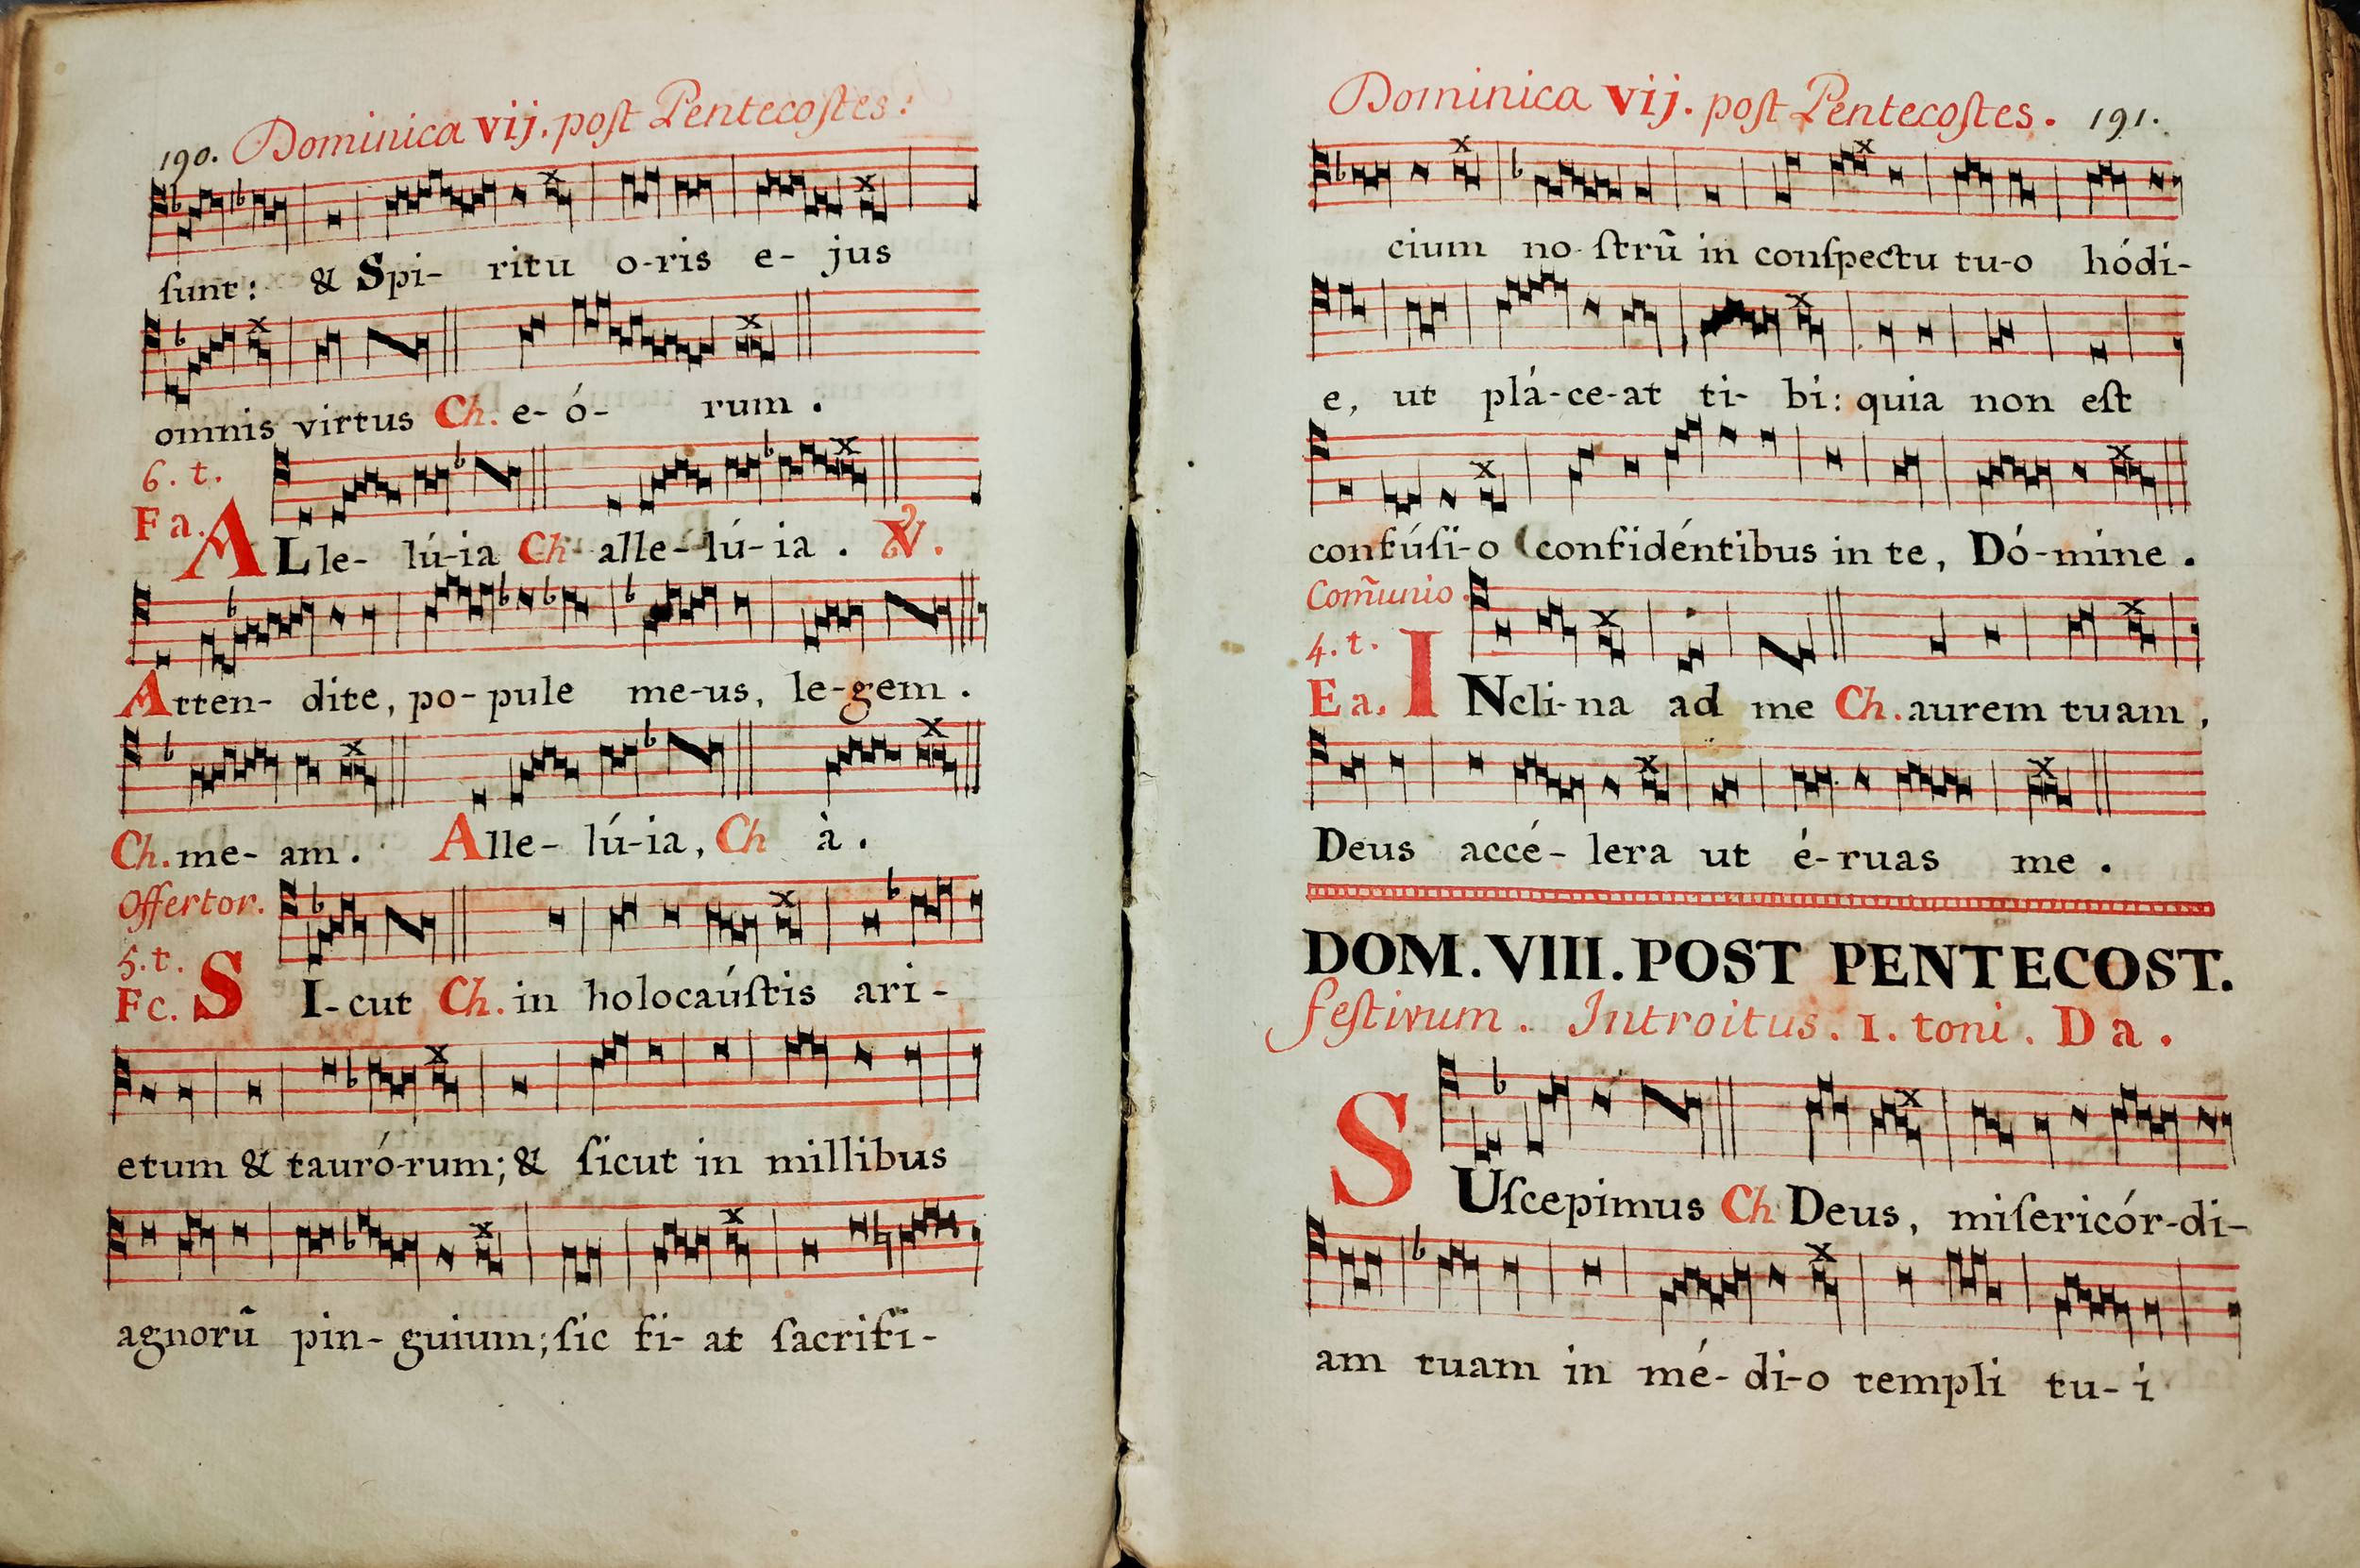 190. Dominica vij. poſt Pentecoſtes:
ſunt: & Spi- ritu o-ris e- jus
omnis virtus Ch. e- ó- rum.
6. t.
Fa. ALle- lú-ia Ch alle-lú-ia. ℣.
Atten- dite, po- pule me-us, le-gem.
Ch. me- am. Alle- lú-ia, Ch à.
Offertor.
5. t.
Fc. SI-cut Ch. in holocaúſtis ari-
etum & tauró-rum; & ſicut in millibus
agnorũ pin- guium; ſic fi- at ſacrifi-
Dominica vij. poſt Pentecoſtes. 191.
cium no-ſtrũ in conſpectu tu-o hódi-
e, ut plá-ce-at ti- bi: quia non eſt
confúſi-o confidéntibus in te, Dó-mine.
Com̃unio.
4. t.
Ea. INcli-na ad me Ch. aurem tuam,
Deus accé- lera ut é-ruas me.
DOM. VIII. POST PENTECOST.
feſtivum. Introitus. 1. toni. D a.
SUſcepimus Ch Deus, miſericór-di-
am tuam in mé- di-o templi tu- i